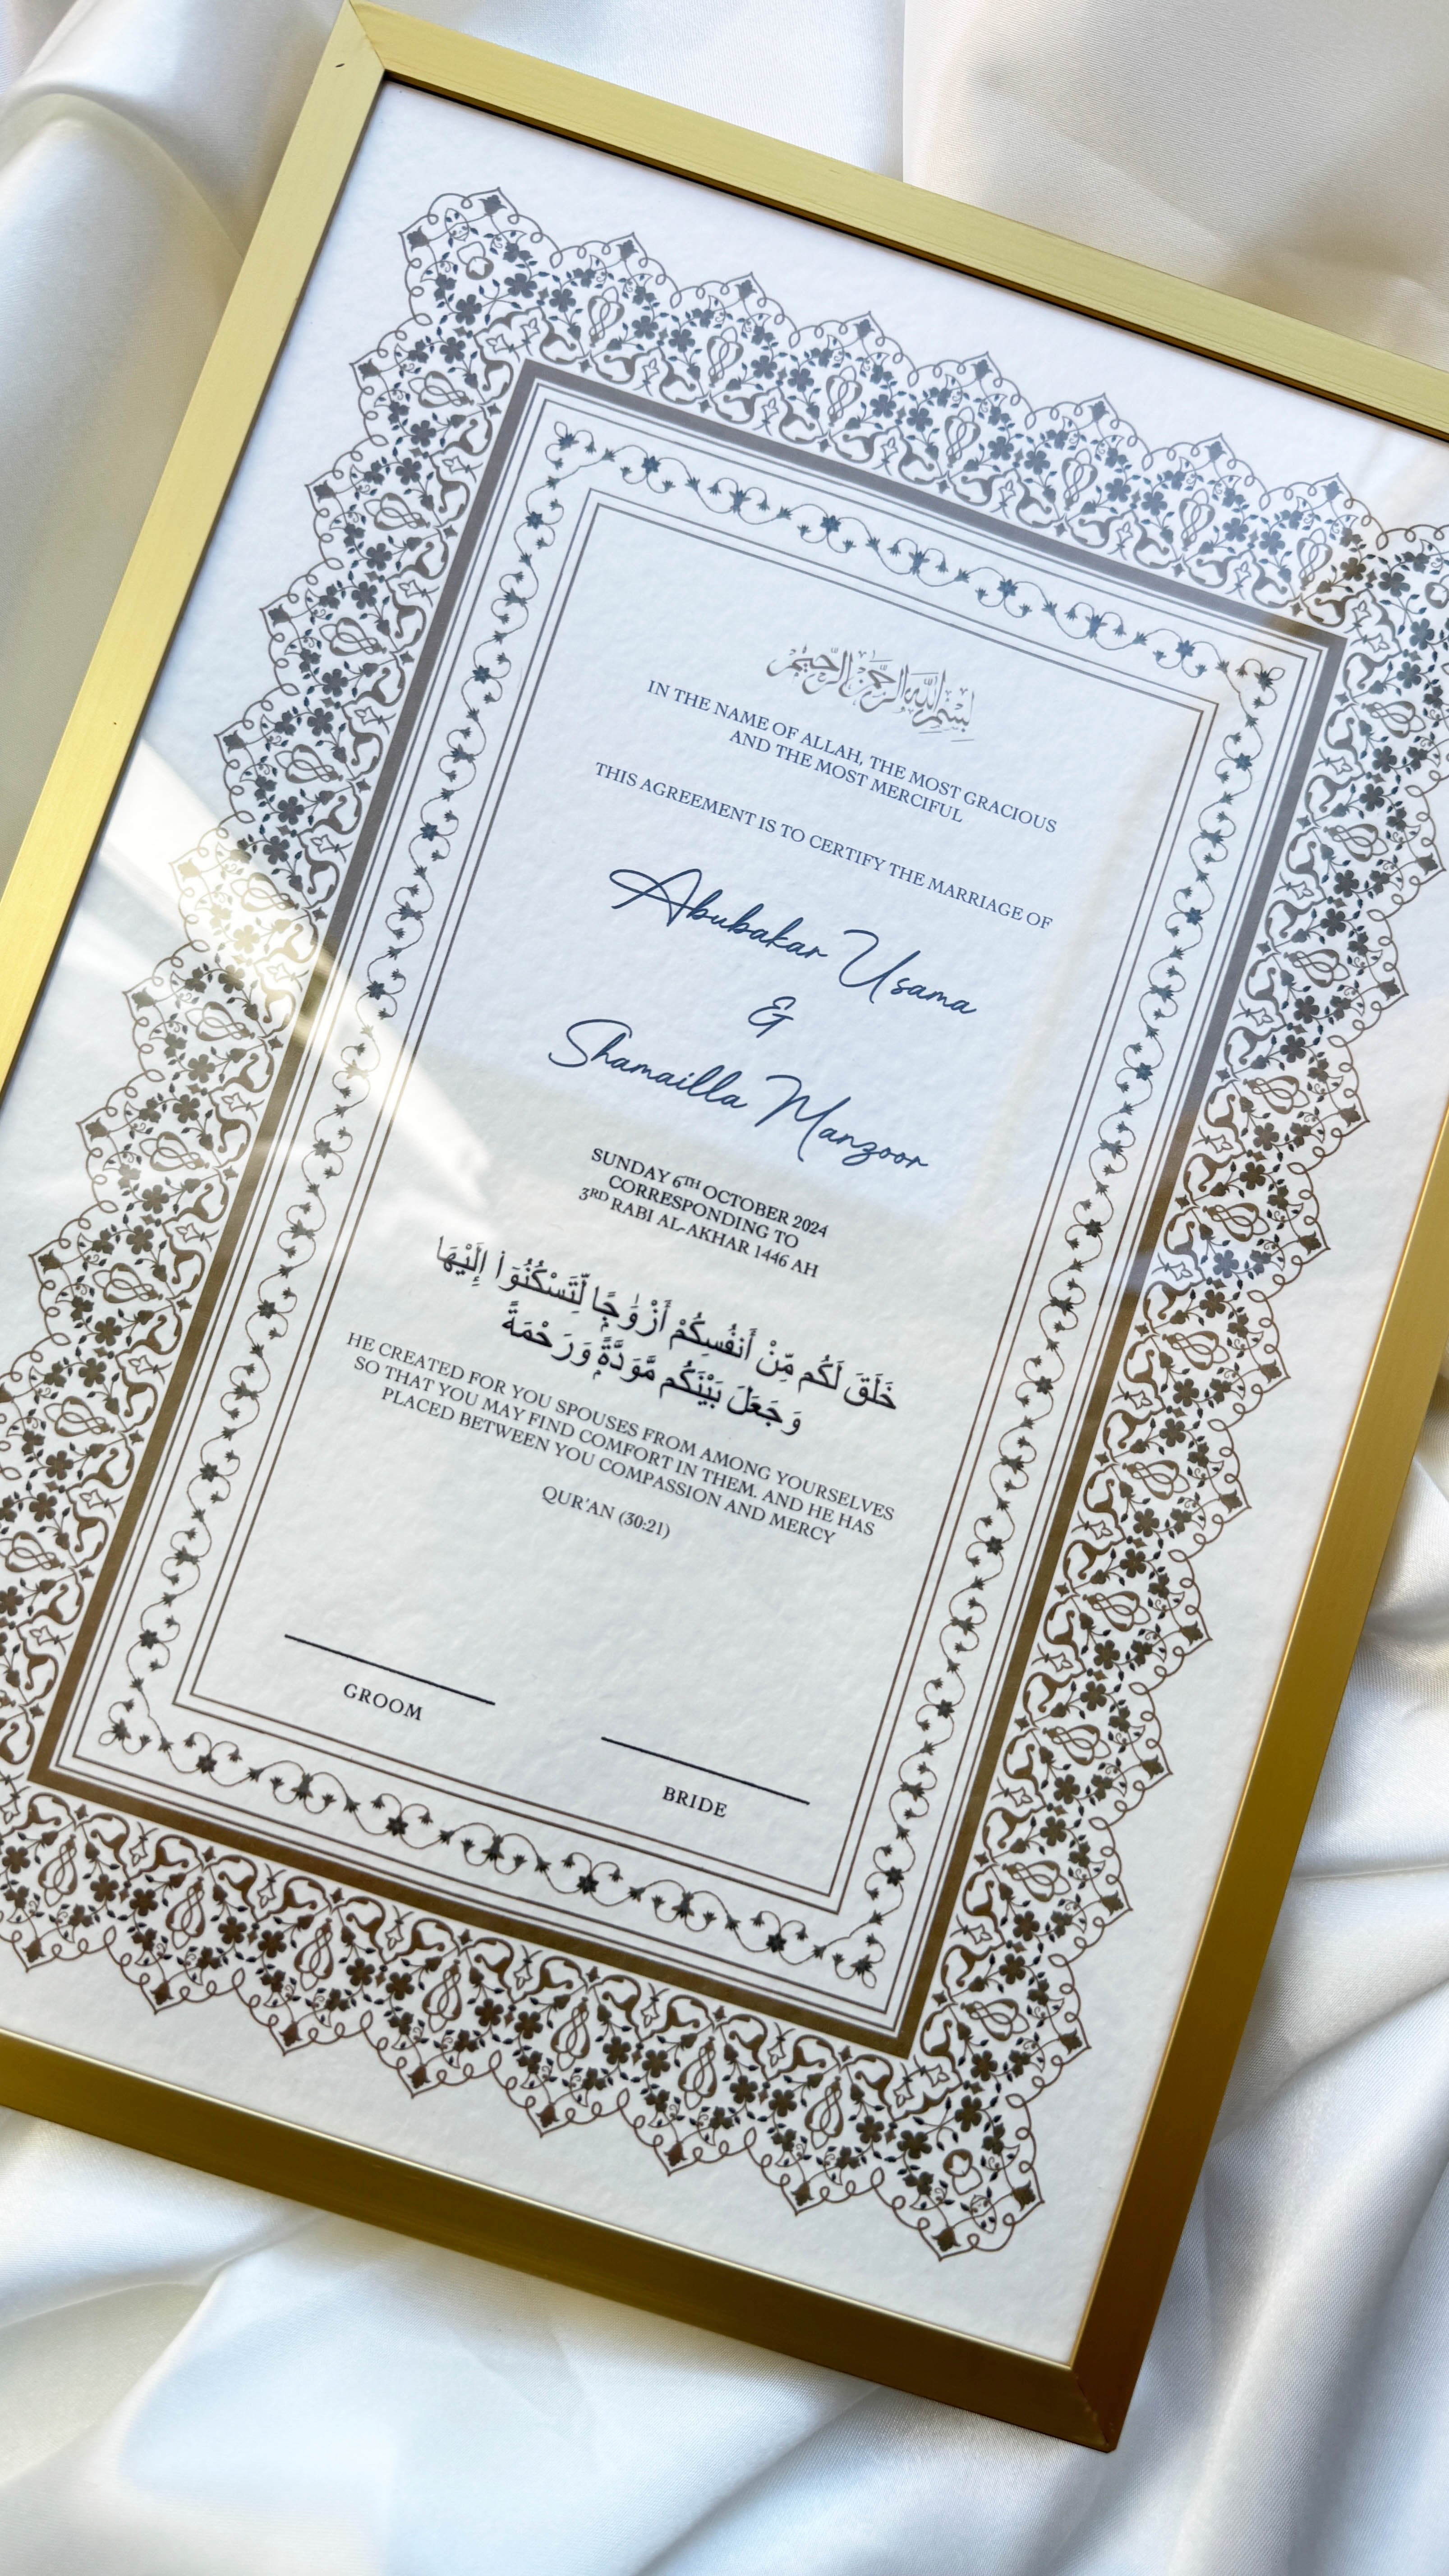 بسم الله الرحمن الرحيم
IN THE NAME OF ALLAH, THE MOST GRACIOUS
AND THE MOST MERCIFUL
THIS AGREEMENT IS TO CERTIFY THE MARRIAGE OF
Abubakar Usama
&
Shamailla Manzoor
SUNDAY 6TH OCTOBER 2024
CORRESPONDING TO
3RD RABI AL-AKHAR 1446 AH
خَلَقَ لَكُم مِّنْ أَنفُسِكُمْ أَزْوَٰجًا لِّتَسْكُنُوٓا۟ إِلَيْهَا
وَجَعَلَ بَيْنَكُم مَّوَدَّةً وَرَحْمَةً
HE CREATED FOR YOU SPOUSES FROM AMONG YOURSELVES
SO THAT YOU MAY FIND COMFORT IN THEM. AND HE HAS
PLACED BETWEEN YOU COMPASSION AND MERCY
QUR'AN (30:21)
GROOM
BRIDE